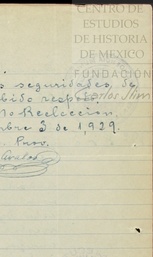 CENTRO DE
ESTUDIOS
DE HISTORIA
DE MEXICO
FUNDACIÓN
Carlos Slim
s seguridades de
bido respeto.
No Reelección.
mbre 3 de 1929.